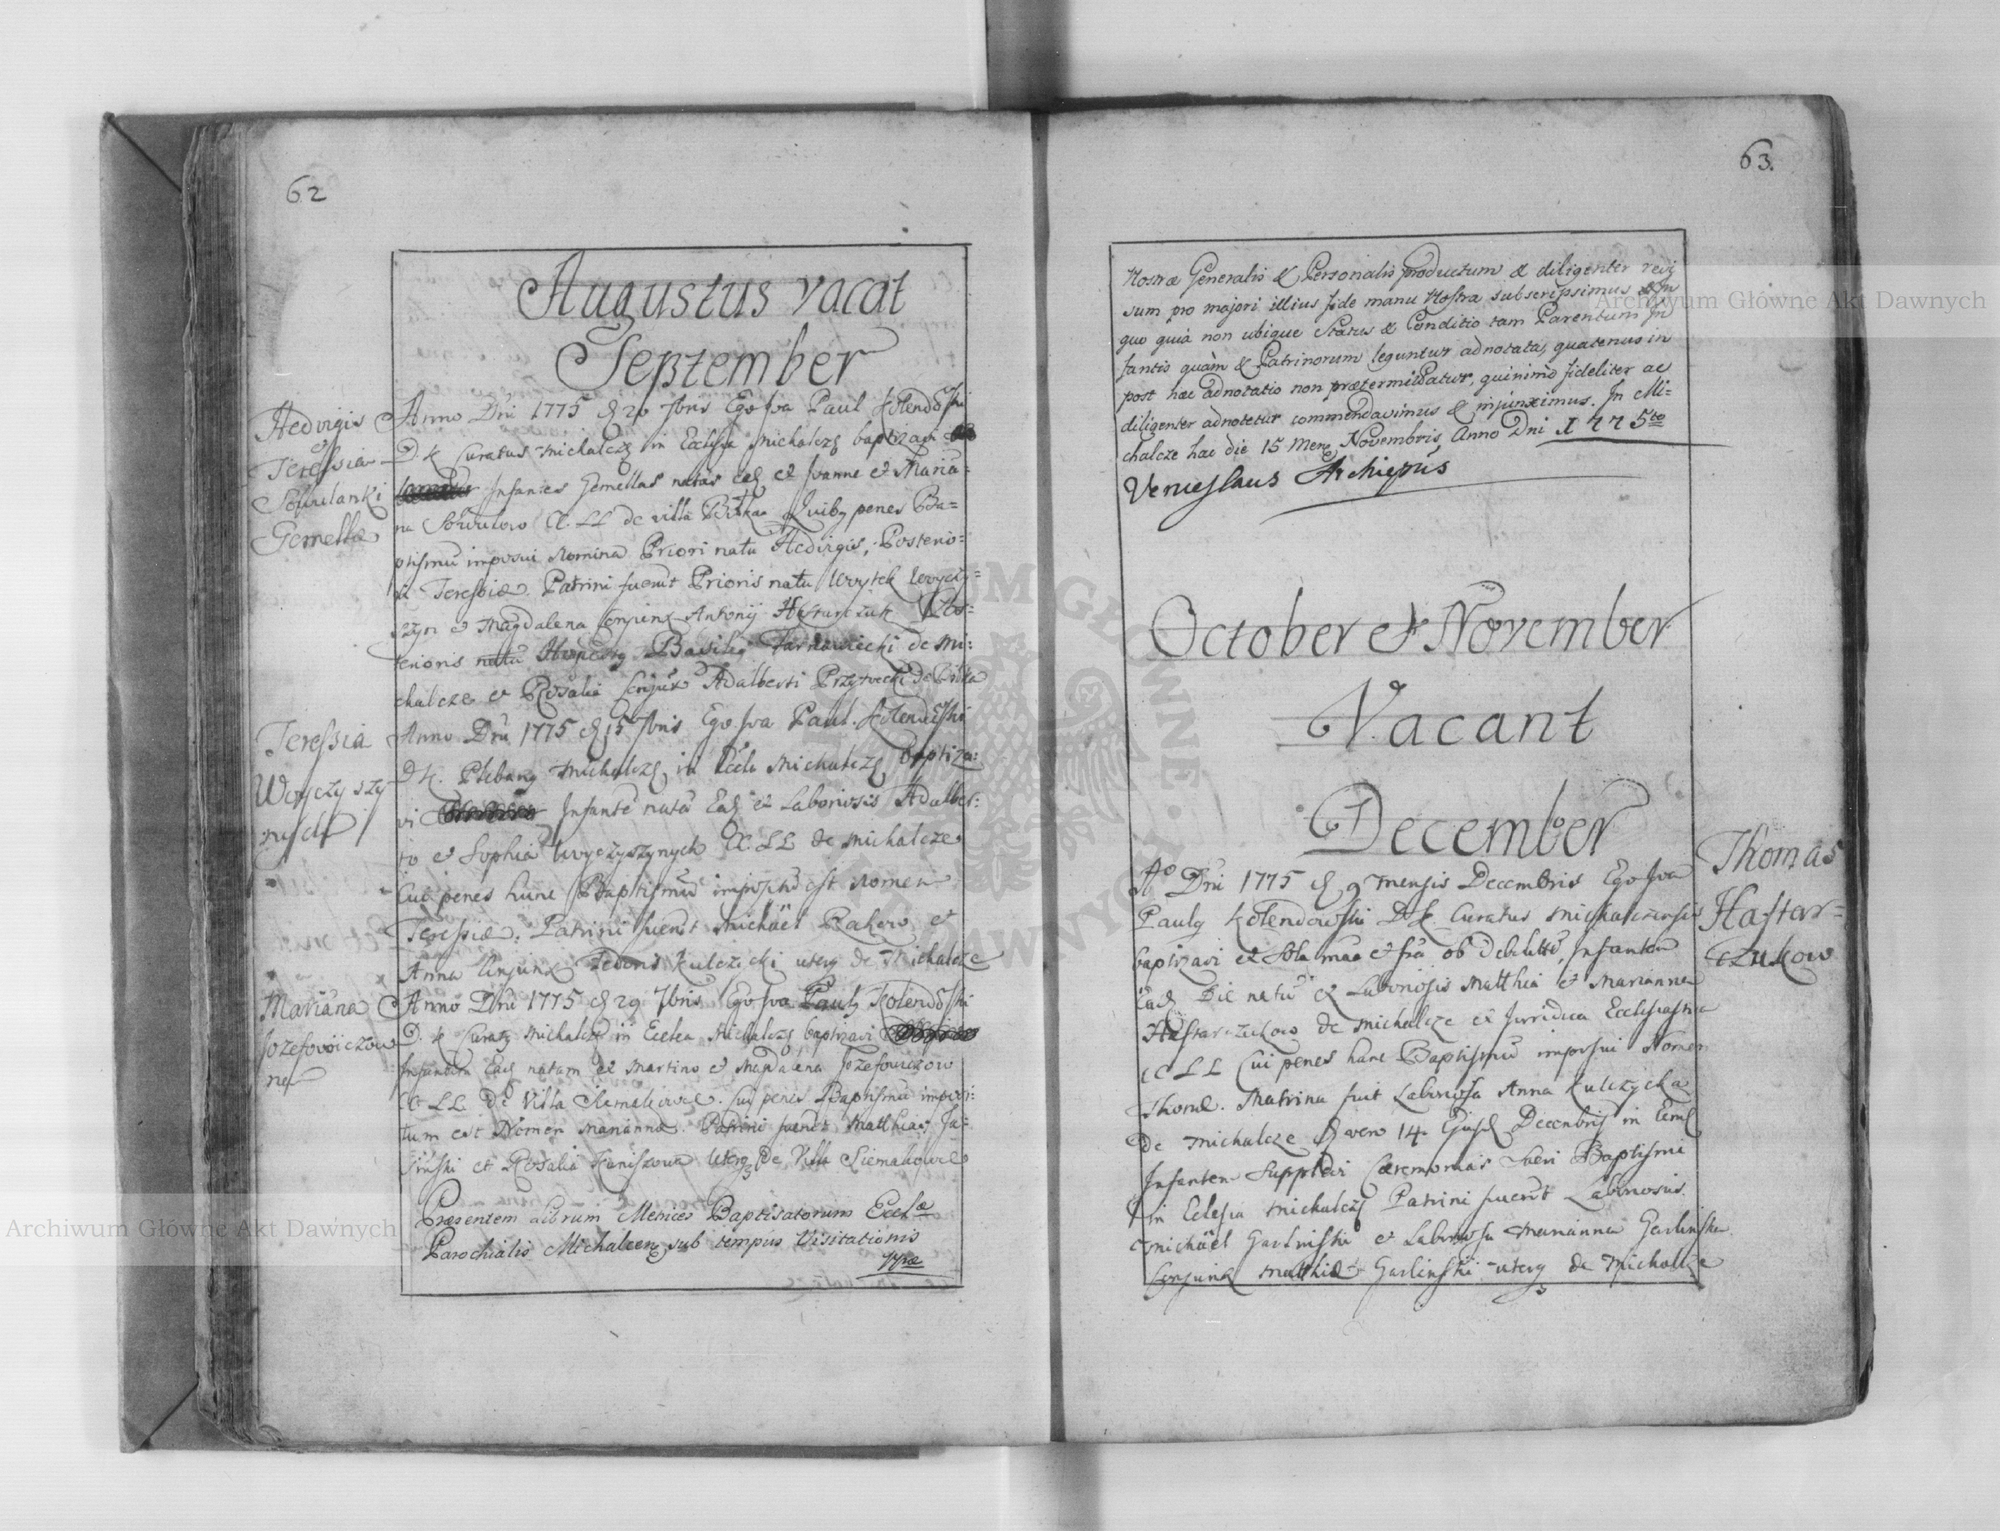 62
Augustus vacat
September
Hedvigis
et
Teressia
Gemellæ
Anno Dni 1775 20 7bris Ego Iva Paul
D. K. Curatus Michalcz in Ecclesia Michalcz baptizavi
Infantes Gemellas natas ead ex Ivanne et Maria=
na CC. LL de villa Quibg penes Ba=
ptismu imposui Nomina Priori natu Hedvigis, Posterio=
ri Teressiæ. Patrini fuerut Prioris natu Woytek Wyczy=
szyn et Magdalena Conjunx Antonij Hastarczuk Pos=
terioris natu Basileg Tarnawiecki de Mi=
chalcze et Rosalia Conjux Adalberti de
Teressia
Wyczyszy
Anno Dni 1775 15 7bris Ego Iva Paul.
D. K. Plebang Michalcz in Eccle Michalcz baptiza=
vi Infante nata Ead ex Laboriosis Adalber=
to et Sophia Wyczyszynych CC. LL de Michalcze
Cui penes hunc Baptismu impositu est Nomen
Teressiæ. Patrini fuerut Michaël Rakow et
Anna Conjunx Kulczicki uterq de Michalcze
Mariana
Jozefowiczow
na
Anno Dni 1775 29 7bris Ego Iva Paulg
D. K Curatg Michalcz in Eclea Michalcz baptizavi
Infantem Ead natam ex Martino et Magdalena Jozefowiczow
CC LL De Villa Siemakowce. Cui penes Baptismu imposi=
tum est Nomen Marianna. Patrini fuerut Matthias Ja=
sinski et Rosalia uterq De Villa Siemakowce
Præsentem Librum Metrices Baptisatorum Ecclæ
Parochialis Michalcen sub tempus Visitationis
63.
Nostræ Generalis & Personalis productum & diligenter revi
sum pro majori illius fide manu Nostra subscripsimus & In
quo quia non ubique Status & Conditio tam Parentum In
fantis quàm & Patrinorum leguntur adnotata, quatenus in
post hac adnotatio non prætermittatur, quinimo fideliter ac
diligenter adnotetur commendavimus & injunximus. In Mi=
chalcze hac die 15 Mens Novembris Anno Dni 1775to
Venceslaus Archiepus
October et November
Vacant
December
Thomas
Hastar=
czukow
Ao Dni 1775 9 mensis Decembris Ego Iva
Paulg Kolendowski D. K. Curatus Michalczensis
baptizavi ex sola ob debilitte, Infantem
Ead Die natu ex Laboriosis Matthia et Marianna
Hastarczukow de Michalcze ex Juridica Ecclesiastica
CC LL Cui penes hunc Baptismu imposui Nomen
Thomæ. Matrina fuit Laboriosa Anna Kulczycka
de Michalcze vero 14 Ejusd Decembris in Eund
Infantem Supplevi Cæremonias Sacri Baptismi
in Eclesia Michalcz Patrini fuerut Laboriosus
Michaël Garlinski et Laboriosa Marianna Garlinska
Conjunx Matthiæ Garlinski uterq de Michalcze
Archiwum Główne Akt Dawnych
Archiwum Główne Akt Dawnych